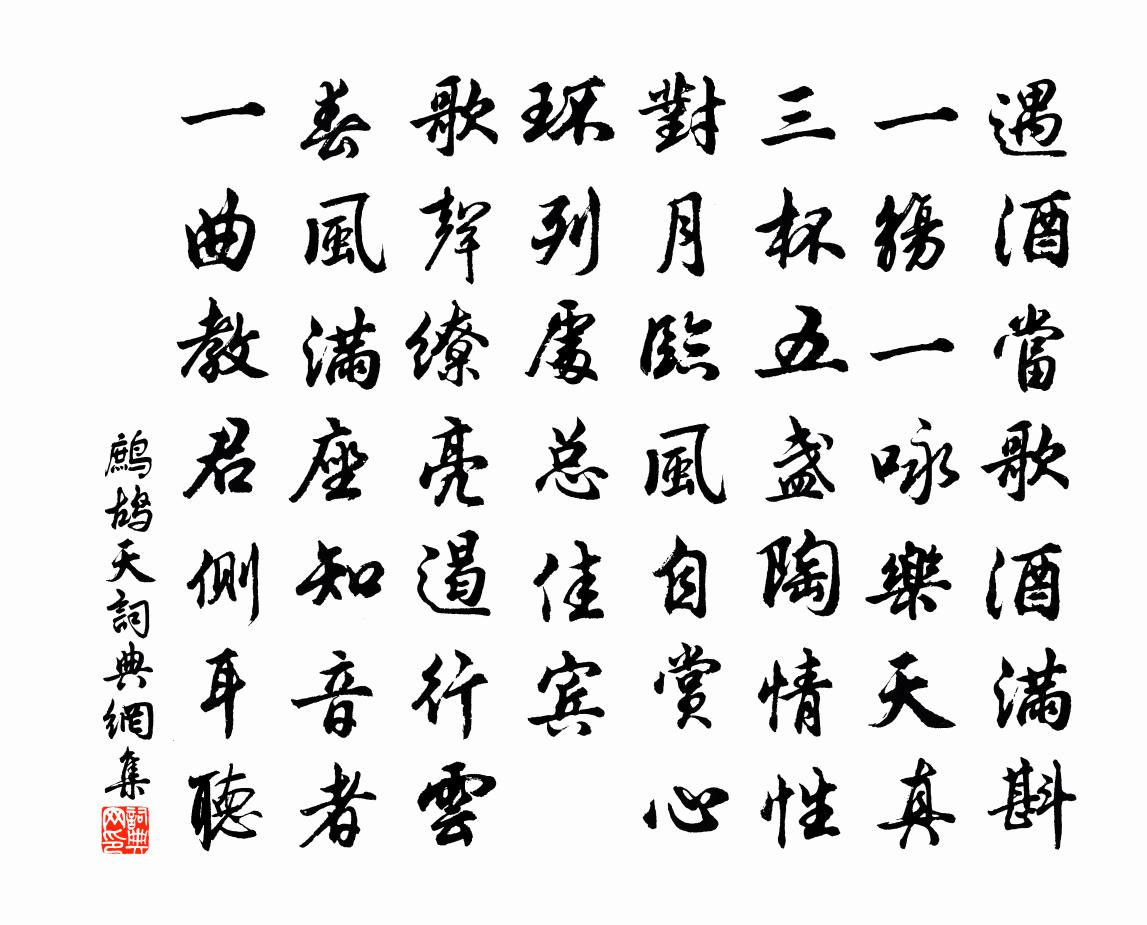 遇酒當歌酒滿斟
一觴一咏樂天真
三杯五盞陶情性
對月臨風自賞心
环列處总佳宾
歌聲繚亮遏行雲
春風滿座知音者
一曲教君側耳聽
鷓鴣天詞典網集
詞典网印